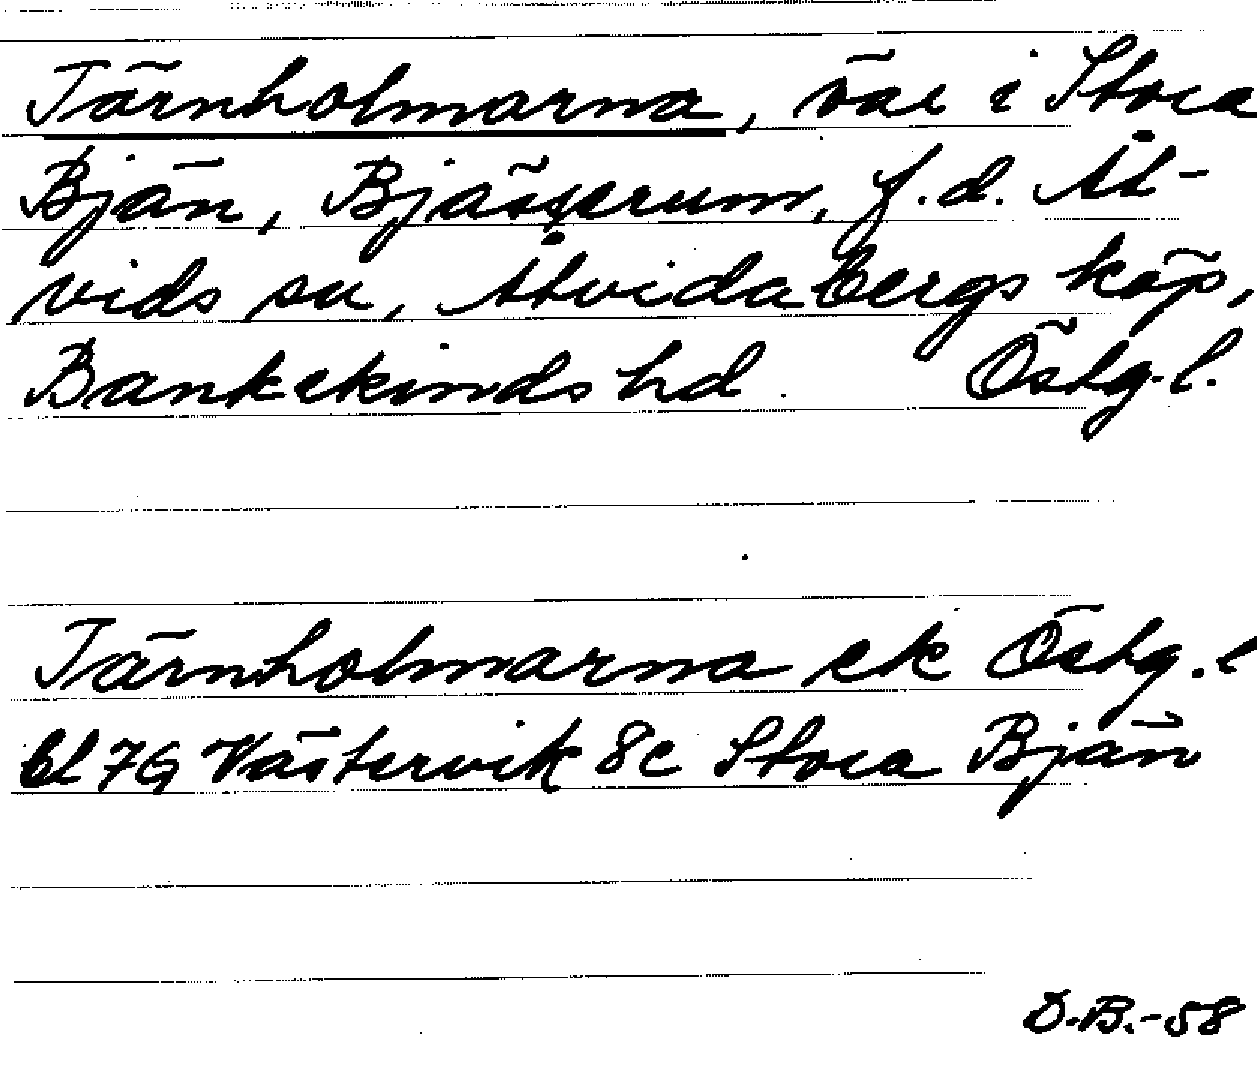 Tärnholmarna, öar i Stora
Bjän, Bjässerum, f.d. Åt-
vids sn, Åtvidabergs köp,
Bankekinds hd. Östg. l.
Tärnholmarna ek Östg. l
bl 7G Västervik 8c Stora Bjän
D.B.-58